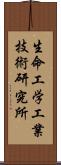 生命工学工業
技術研究所